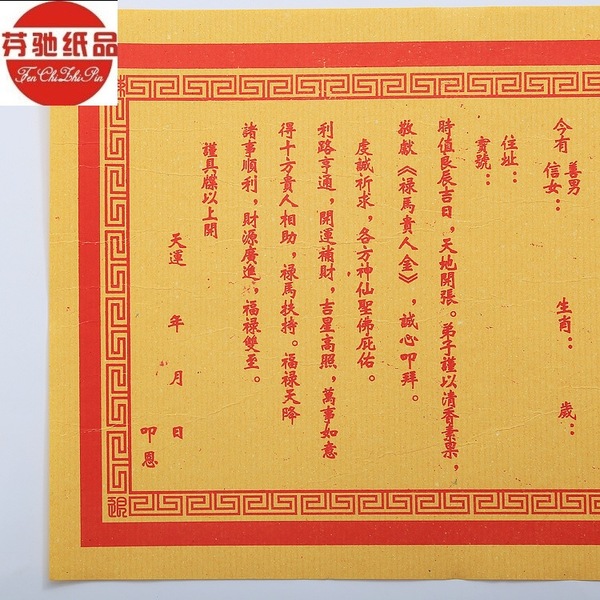 芬驰纸品
Fen Chi Zhi Pin
今有 善男 信女： 生肖： 歲：
住址：
寶號：
時值良辰吉日，天地開張。弟子謹以清香素果，
敬獻《祿馬貴人金》，誠心叩拜。
虔誠祈求，各方神仙聖佛庇佑。
利路亨通，開運補財，吉星高照，萬事如意
得十方貴人相助，祿馬扶持。福祿天降
諸事順利，財源廣進，福祿雙至。
謹具牒以上開
天運 年 月 日
叩恩